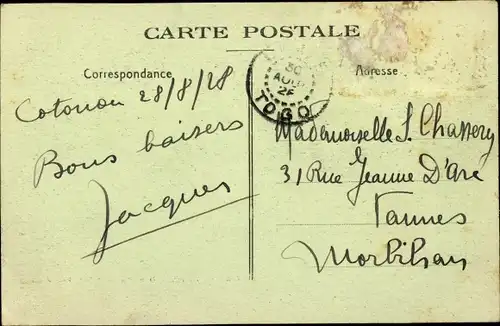 CARTE POSTALE
Correspondance
Adresse
30
AOUT
28
TOGO
Cotonou 28/8/28
Bons baisers
Jacques
Mademoiselle S. Chassery
31 Rue Jeanne D'Arc
Vannes
Morbihan